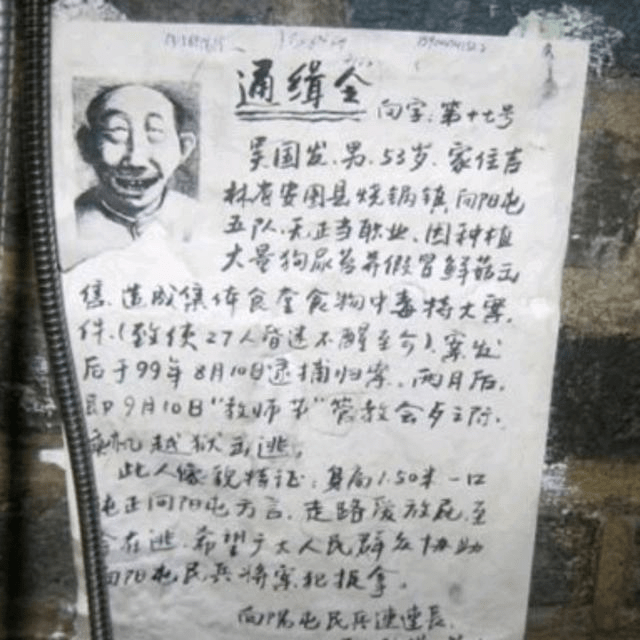 通缉令
向字:第十七号
吴国发、男、53岁、家住吉
林省安图县烧锅镇向阳屯
五队、无正当职业、因种植
大量狗尿苔并假冒鲜菇出
售、造成集体食堂食物中毒特大案
件、(致使27人昏迷不醒至今)、案发
后于99年8月10日逮捕归案、两月后、
即9月10日“教师节”管教会歹之际、
乘机越狱在逃。
此人像貌特征:身高1.50米一口
屯正向阳屯方言、走路爱放屁、至
今在逃、希望广大人民群众协助
向阳屯民兵将案犯捉拿。
向阳屯民兵连连长、